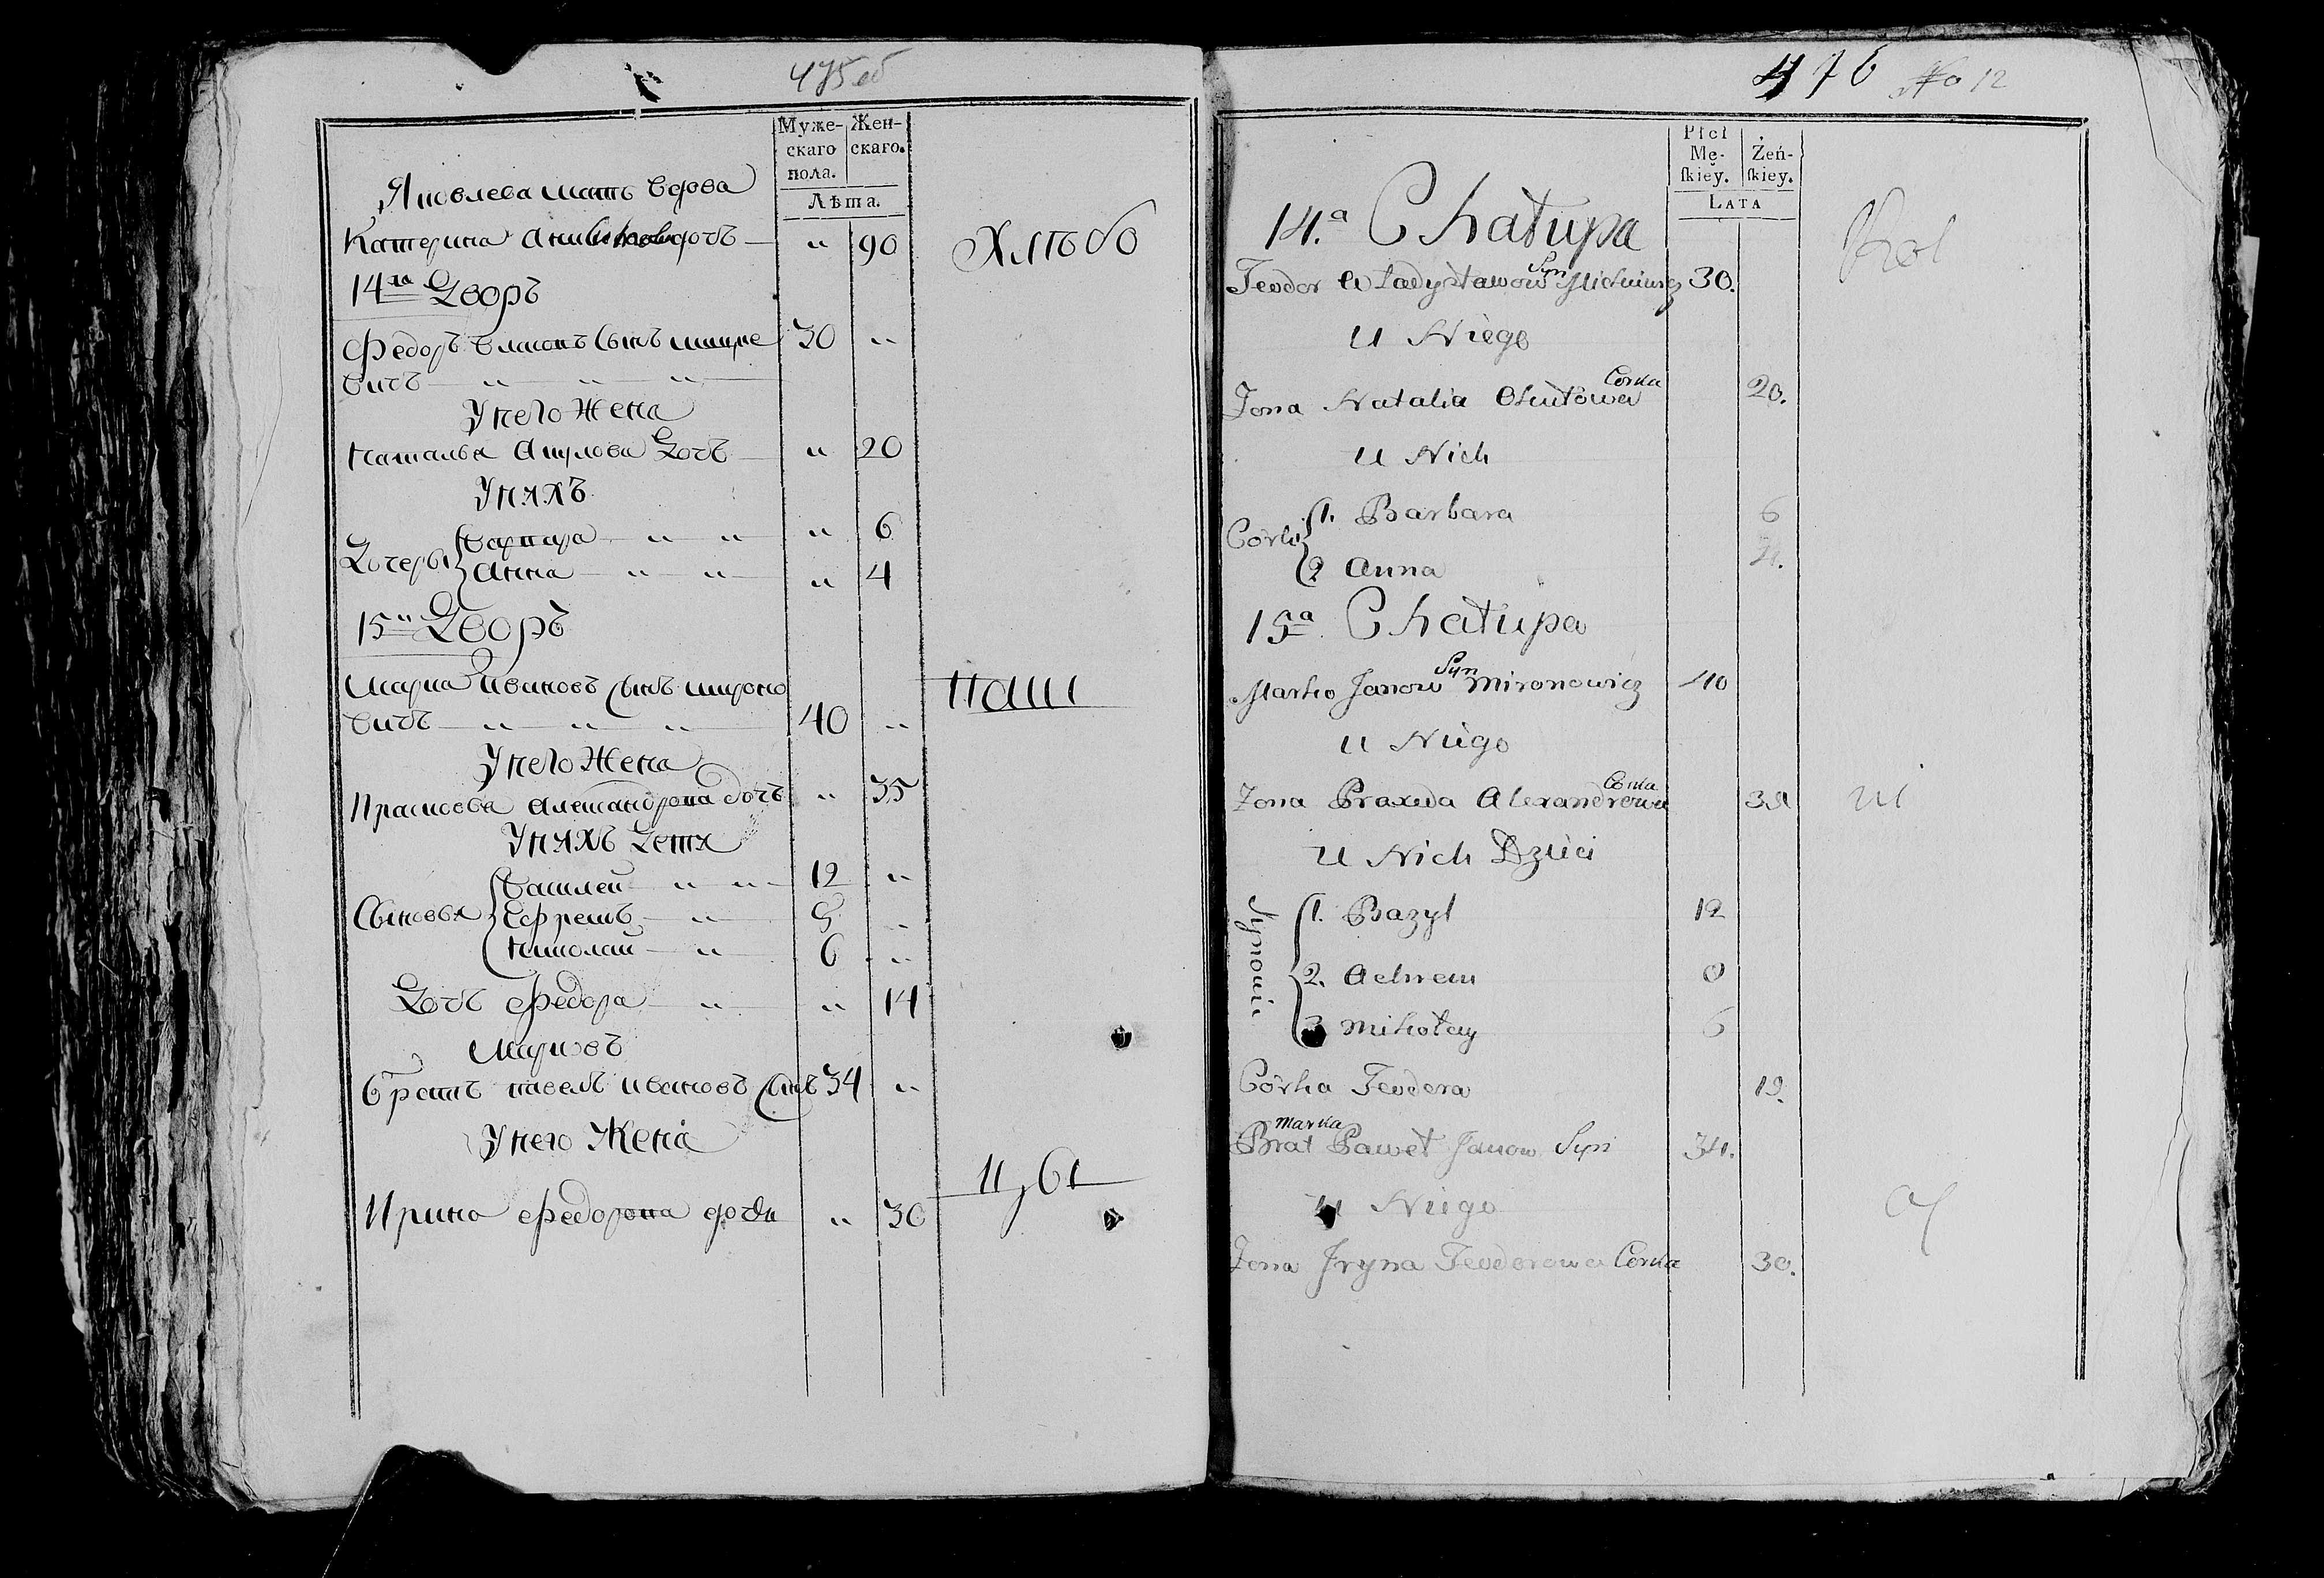 475 об
Муже-
скаго
пола.
Жен-
скаго.
Лѣта.
Яковлева мать вдова
Катерина дочь — " 90
Хлѣбо
14й Дворъ
Федоръ Власовъ Сынъ мицке 30 "
вичъ " " "
У него Жена
Наталья Акулова Дочь " 20
У нихъ
Дочеры
Варвара " " " 6
Анна " " " 4
15й Дворъ
Марка Ивановъ Сынъ мироно
вичъ " " " 40 "
паш
У него Жена
Прасковья Александрова дочъ " 35
У нихъ Дети
Сыновья
Василей " " 12 "
Ефремъ " 9 "
Николай " 6 "
Дочь Федора " " 14
Марковъ
братъ павелъ Ивановъ Сынъ 34 "
У него Жена
цы
Ирина Федорова дочь " 30
476 No 12
Płci
Mę-
ſkiey.
Żeń-
ſkiey.
LATA
14.a Chałupa
Teodor Władysławow Syn 30.
U Niego
Żona Natalia Corka 20.
U Nich
Córki
1. Barbara 6
2 Anna 4.
15a Chałupa
Marko Janow Syn Mironowicz 40
U Niego
Żona Praxeda Alexandrowa Corka 35
U Nich Dzieci
Synowie
1. Bazyl 12
2. Achrem 9
3 Mikołay 6
Córka Teodora
Brat Marka Paweł Janow Syn 34.
U Niego
Żona Jryna Teodorowa Corka 30.